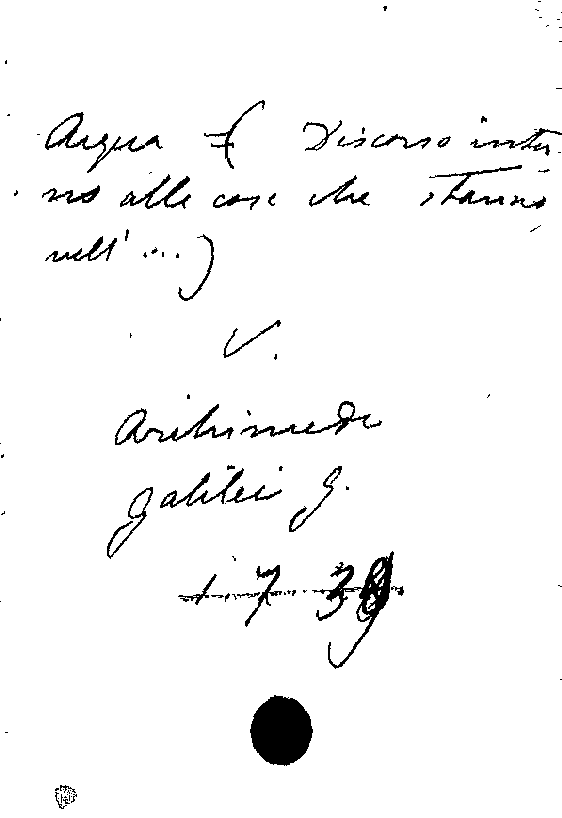 Acqua (Discorso inter-
no alle cose che stanno,
nell' ...)
V.
Archimede
Galilei G.